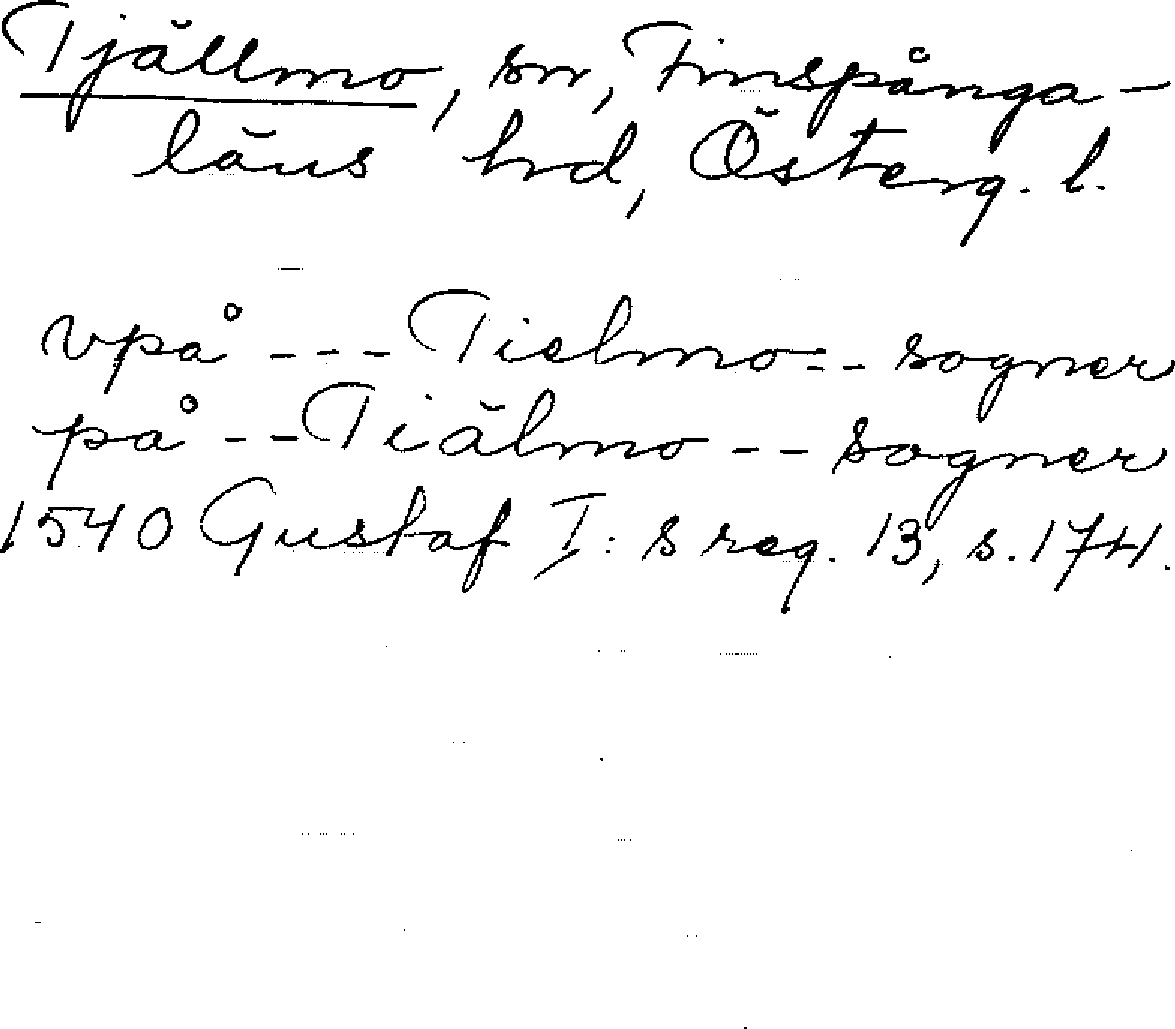 Tjällmo, sn, Finspånga-
läns hrd, Österg. l.
vpå --- Tielmo -- sogner
på -- Tiälmo -- sogner
1540 Gustaf I:s reg. 13, s. 174.